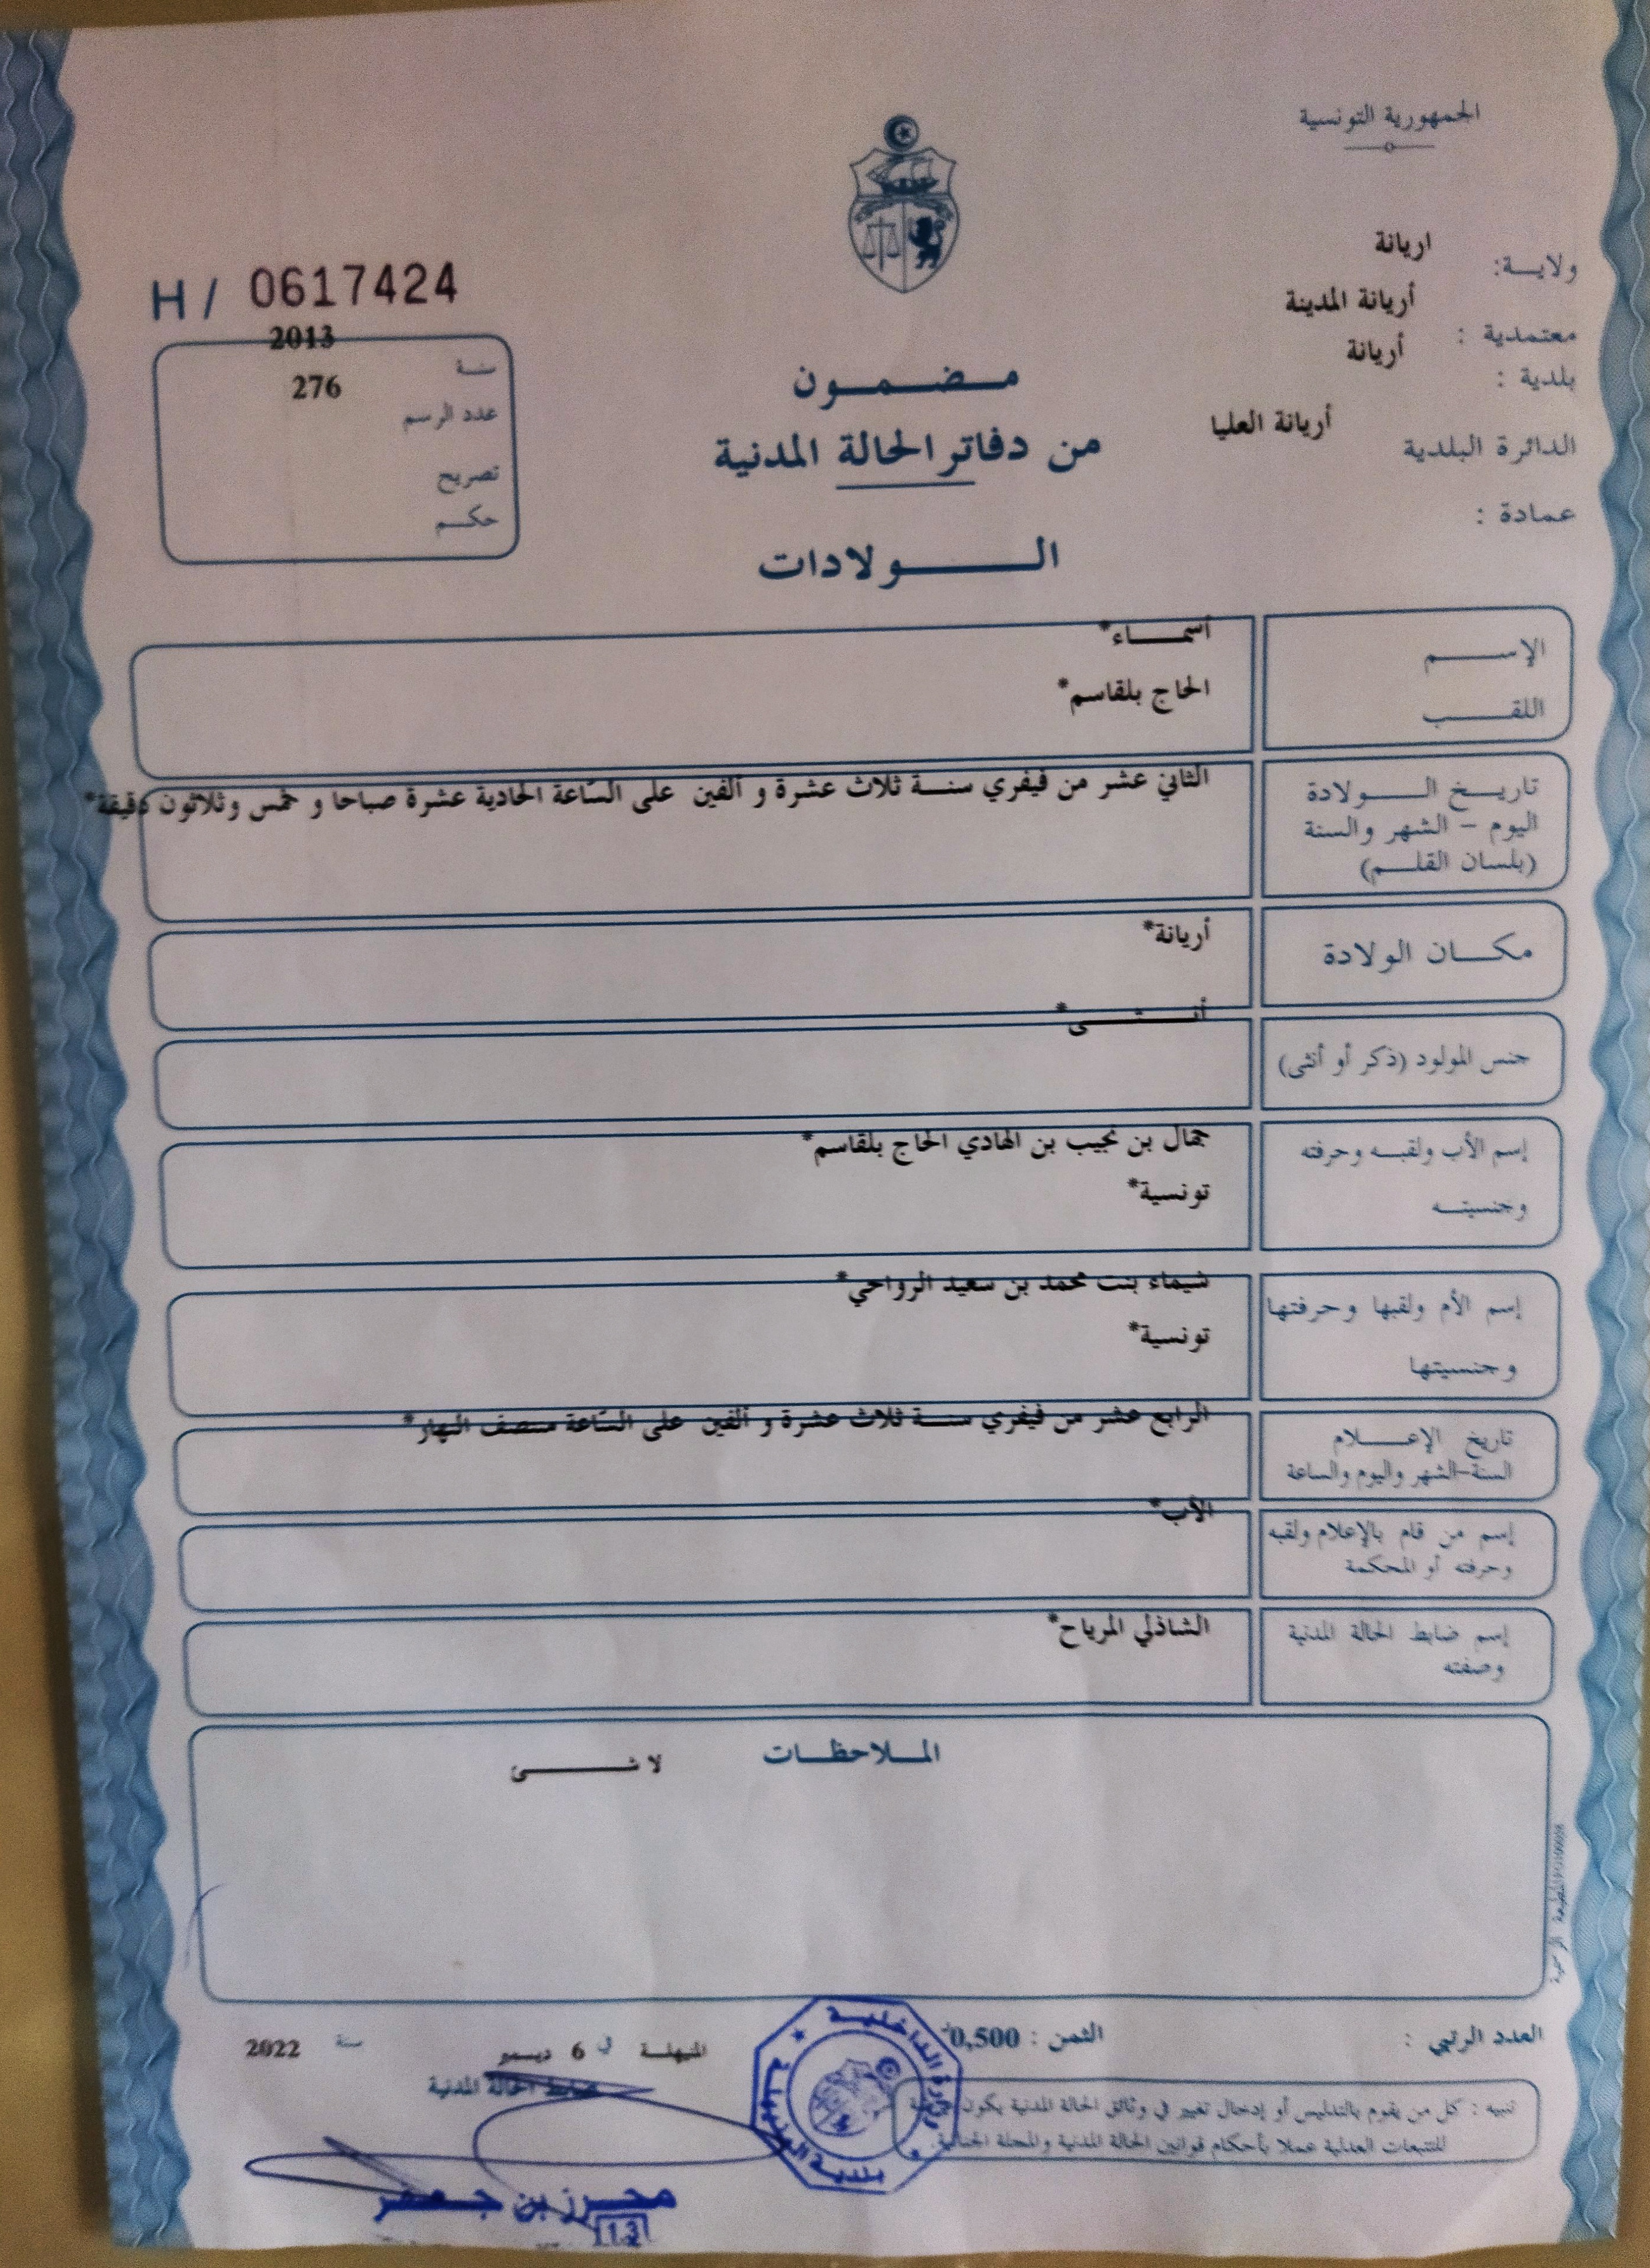 الجمهورية التونسية
ولايـــة: اريانة
معتمدية : أريانة المدينة
بلدية : أريانة
الدائرة البلدية أريانة العليا
عمادة :
H / 0617424
سنة 2013
عدد الرسم 276
تصريح
حكــم
مـضـمـون
من دفاتر الحالة المدنية
الـــولادات
الإســـم أسمـــاء*
اللقـــب الحاج بلقاسم*
تاريـــخ الـــولادة الثاني عشر من فيفري سنـــة ثلاث عشرة و ألفين على السّاعة الحادية عشرة صباحا و خمس وثلاثون دقيقة*
اليوم – الشهر والسنة
(بلسان القلـــم)
مكـــان الولادة أريانة*
جنس المولود (ذكر أو أنثى) أنـــثـــى*
إسم الأب ولقبـــه وحرفته جمال بن نجيب بن الهادي الحاج بلقاسم*
وجنسيتـــه تونسية*
إسم الأم ولقبها وحرفتها شيماء بنت محمد بن سعيد الرواحي*
وجنسيتها تونسية*
تاريخ الإعـــلام الرابع عشر من فيفري سنـــة ثلاث عشرة و ألفين على السّاعة منتصف النهار*
السنة-الشهر واليوم والساعة
إسم من قام بالإعلام ولقبه الأب*
وحرفته أو المحكمة
إسم ضابط الحالة المدنية الشاذلي المرياح*
وصفته
المـــلاحظـــات لا شـــئ
المطبعة الرسمية
العدد الرتبي :
الثمن : 0,500
المنيهلـة في 6 ديسمبر سنة 2022
ضابط الحالة المدنية
تنبيه : كل من يقوم بالتدليس أو إدخال تغيير في وثائق الحالة المدنية يكون عرضة
للتتبعات العدلية عملا بأحكام قوانين الحالة المدنية والمجلة الجنائية.
وزارة الداخليـــة
بلدية المنيهلة
محـرز بن جـعفر
13